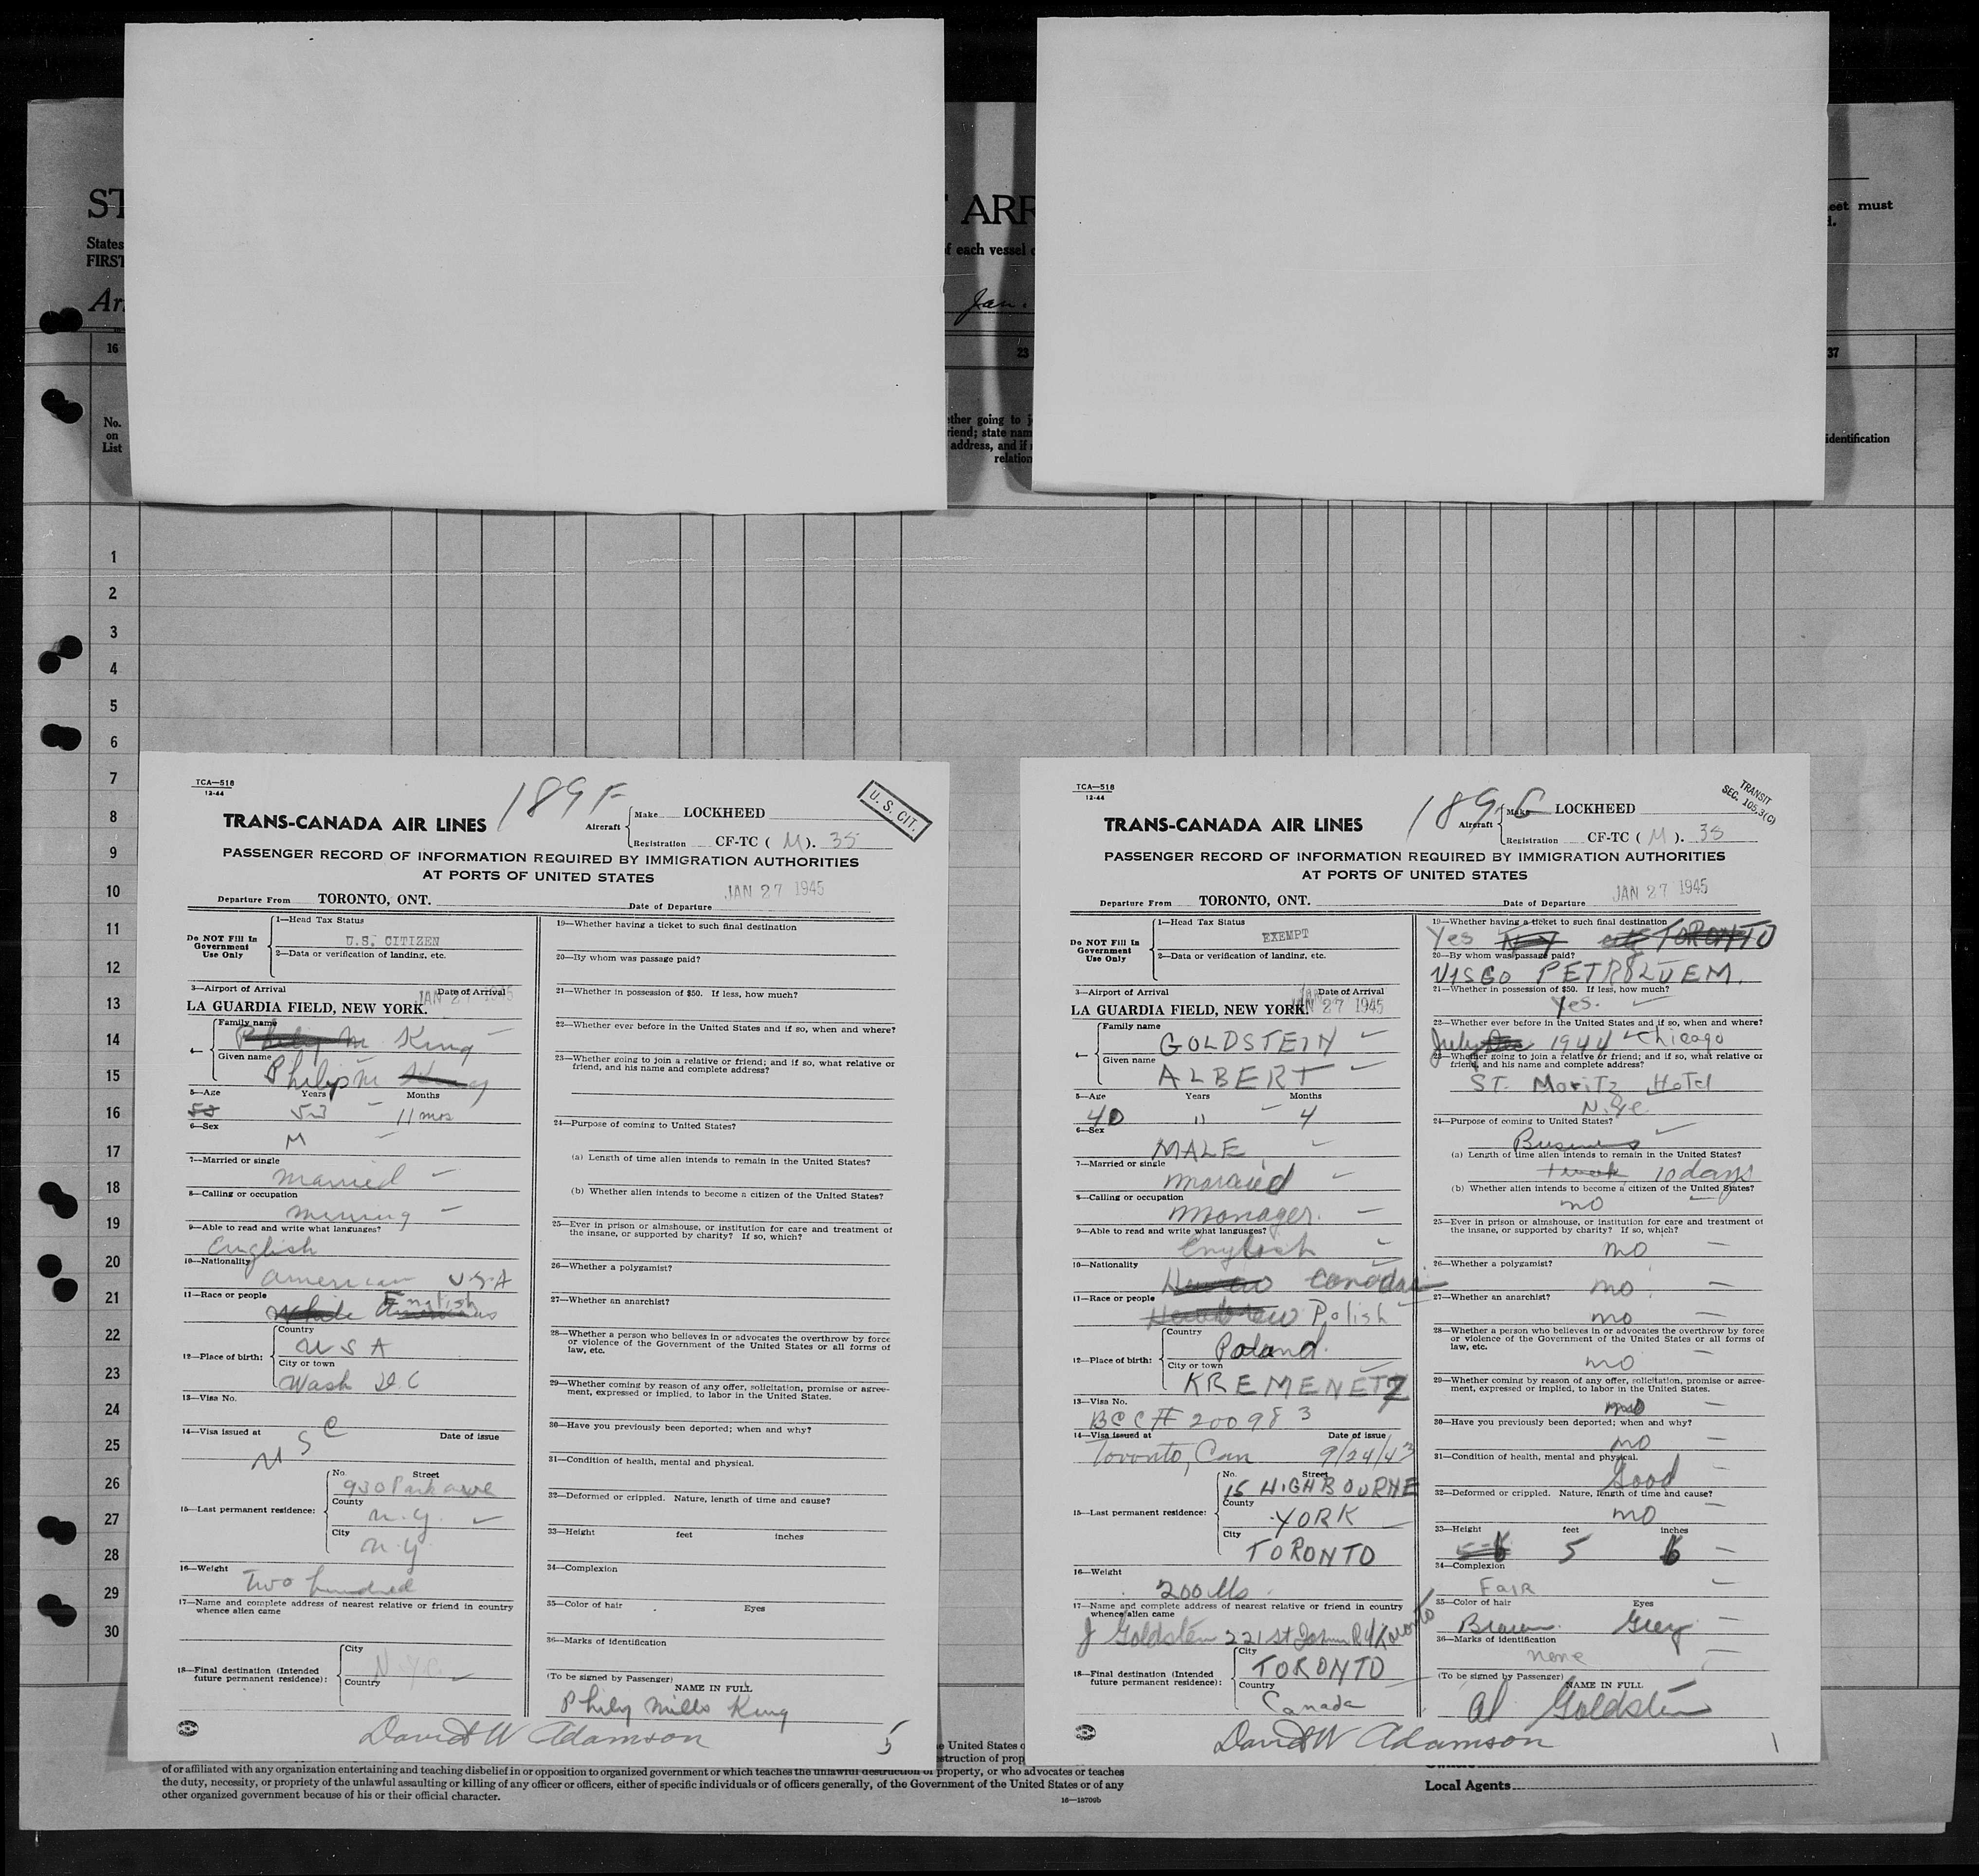 ST
ARR
eet must
d.
States
f each vessel o
FIRST
Arr
Jan.
16
23
37
No.
on
List
ther going to j
riend; state nam
address, and if
relation
identification
1
2
3
4
5
6
7
8
9
10
11
12
13
14
15
16
17
18
19
20
21
22
23
24
25
26
27
28
29
30
TCA—518
12-44
189 F
U. S. CIT.
TRANS-CANADA AIR LINES
Aircraft
Make LOCKHEED
Registration CF-TC ( M ). 38
PASSENGER RECORD OF INFORMATION REQUIRED BY IMMIGRATION AUTHORITIES
AT PORTS OF UNITED STATES
JAN 27 1945
Departure From TORONTO, ONT. Date of Departure
Do NOT Fill In
Government
Use Only
1—Head Tax Status
U.S. CITIZEN
2—Data or verification of landing, etc.
3—Airport of Arrival Date of Arrival
LA GUARDIA FIELD, NEW YORK. JAN 27 1945
4—
Family name
Philip M. King
Given name
Philip M King
5—Age Years Months
53 53 11 mos
6—Sex
M
7—Married or single
Married
8—Calling or occupation
Mining
9—Able to read and write what languages?
English
10—Nationality
American U.S.A
11—Race or people
English
White
12—Place of birth:
Country
U S A
City or town
Wash D.C
13—Visa No.
14—Visa issued at Date of issue
U S C
15—Last permanent residence:
No. Street
930 Park Ave
County
N.Y.
City
N.Y.
16—Weight
Two hundred
17—Name and complete address of nearest relative or friend in country
whence alien came
18—Final destination (Intended
future permanent residence):
City
N.Y.C.
Country
19—Whether having a ticket to such final destination
20—By whom was passage paid?
21—Whether in possession of $50. If less, how much?
22—Whether ever before in the United States and if so, when and where?
23—Whether going to join a relative or friend; and if so, what relative or
friend, and his name and complete address?
24—Purpose of coming to United States?
(a) Length of time alien intends to remain in the United States?
(b) Whether alien intends to become a citizen of the United States?
25—Ever in prison or almshouse, or institution for care and treatment of
the insane, or supported by charity? If so, which?
26—Whether a polygamist?
27—Whether an anarchist?
28—Whether a person who believes in or advocates the overthrow by force
or violence of the Government of the United States or all forms of
law, etc.
29—Whether coming by reason of any offer, solicitation, promise or agree-
ment, expressed or implied, to labor in the United States.
30—Have you previously been deported; when and why?
31—Condition of health, mental and physical.
32—Deformed or crippled. Nature, length of time and cause?
33—Height feet inches
34—Complexion
35—Color of hair Eyes
36—Marks of identification
(To be signed by Passenger)
NAME IN FULL
Philip Mills King
David W Adamson
5
TCA—518
12-44
TRANSIT
SEC. 105.3(C)
TRANS-CANADA AIR LINES
Aircraft
Make LOCKHEED
Registration CF-TC ( M ). 38
PASSENGER RECORD OF INFORMATION REQUIRED BY IMMIGRATION AUTHORITIES
AT PORTS OF UNITED STATES
JAN 27 1945
Departure From TORONTO, ONT. Date of Departure
Do NOT Fill In
Government
Use Only
1—Head Tax Status
EXEMPT
2—Data or verification of landing, etc.
3—Airport of Arrival Date of Arrival
LA GUARDIA FIELD, NEW YORK. JAN 27 1945
4—
Family name
GOLDSTEIN
Given name
ALBERT
5—Age Years Months
40 " 4
6—Sex
MALE
7—Married or single
Married
8—Calling or occupation
Manager.
9—Able to read and write what languages?
English
10—Nationality
Canadian
11—Race or people
Hebrew Polish
12—Place of birth:
Country
Poland.
City or town
KREMENETZ
13—Visa No.
BCC# 200983
14—Visa issued at Date of issue
Toronto, Can 9/24/43
15—Last permanent residence:
No. Street
15 HIGHBOURNE
County
YORK
City
TORONTO
16—Weight
200 lbs.
17—Name and complete address of nearest relative or friend in country
whence alien came
J Goldstein 221 St Johns Rd Toronto
18—Final destination (Intended
future permanent residence):
City
TORONTO
Country
Canada
19—Whether having a ticket to such final destination
Yes TORONTO
20—By whom was passage paid?
VISGO PETROLUEM.
21—Whether in possession of $50. If less, how much?
Yes.
22—Whether ever before in the United States and if so, when and where?
July 1944 Chicago
23—Whether going to join a relative or friend; and if so, what relative or
friend, and his name and complete address?
ST. Moritz Hotel
N.Y.C.
24—Purpose of coming to United States?
Business
(a) Length of time alien intends to remain in the United States?
1 week 10 days
(b) Whether alien intends to become a citizen of the United States?
no
25—Ever in prison or almshouse, or institution for care and treatment of
the insane, or supported by charity? If so, which?
no
26—Whether a polygamist?
no
27—Whether an anarchist?
no
28—Whether a person who believes in or advocates the overthrow by force
or violence of the Government of the United States or all forms of
law, etc.
no
29—Whether coming by reason of any offer, solicitation, promise or agree-
ment, expressed or implied, to labor in the United States.
no
30—Have you previously been deported; when and why?
no
31—Condition of health, mental and physical.
Good
32—Deformed or crippled. Nature, length of time and cause?
no
33—Height feet inches
5 6
34—Complexion
FAIR
35—Color of hair Eyes
Brown Grey
36—Marks of identification
none
(To be signed by Passenger)
NAME IN FULL
Al Goldstein
David W Adamson
1
e United States o
struction of prop
of or affiliated with any organization entertaining and teaching disbelief in or opposition to organized government or which teaches the unlawful destruction of property, or who advocates or teaches
the duty, necessity, or propriety of the unlawful assaulting or killing of any officer or officers, either of specific individuals or of officers generally, of the Government of the United States or of any
other organized government because of his or their official character.
16—18700b
Local Agents